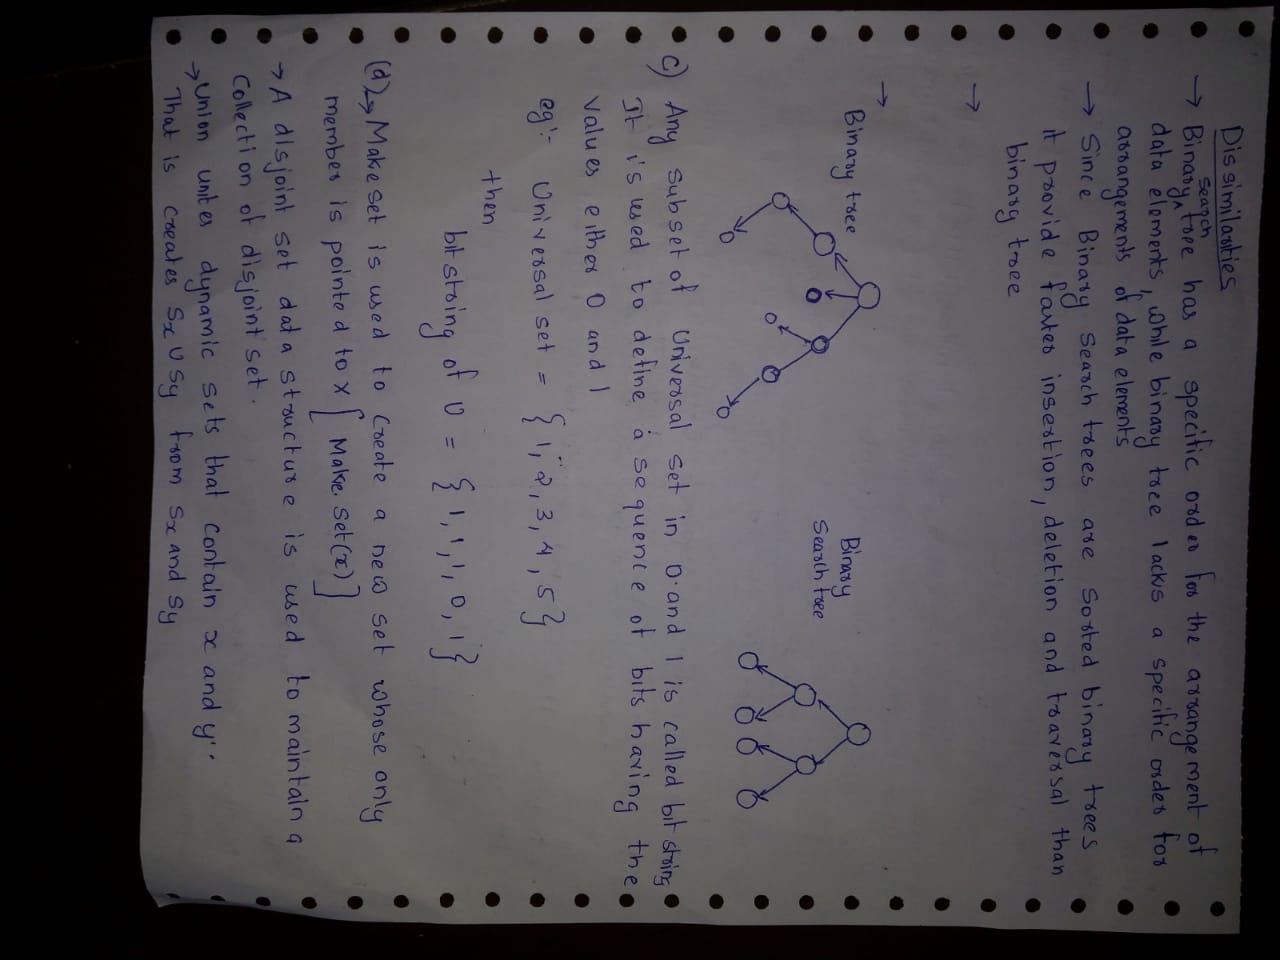 Dissimilarities
→ Binary search tree has a specific order for the arrangement of
data elements, while binary tree lacks a specific order for
arrangements of data elements
→ Since Binary search trees are sorted binary trees
it provide faster insertion, deletion and traversal than
binary tree
→
→
Binary tree
Binary
Search tree
c) Any subset of Universal set in 0 and 1 is called bit string
It is used to define a sequence of bits having the
values either 0 and 1
eg:- Universal set = {1, 2, 3, 4, 5}
then
bit string of U = {1, 1, 1, 0, 1}
(d) → Make set is used to create a new set whose only
member is pointed to x [Make.set(x)]
→ A disjoint set data structure is used to maintain a
collection of disjoint set.
→ Union unites dynamic sets that contain x and y.
That is creates Sx ∪ Sy from Sx and Sy